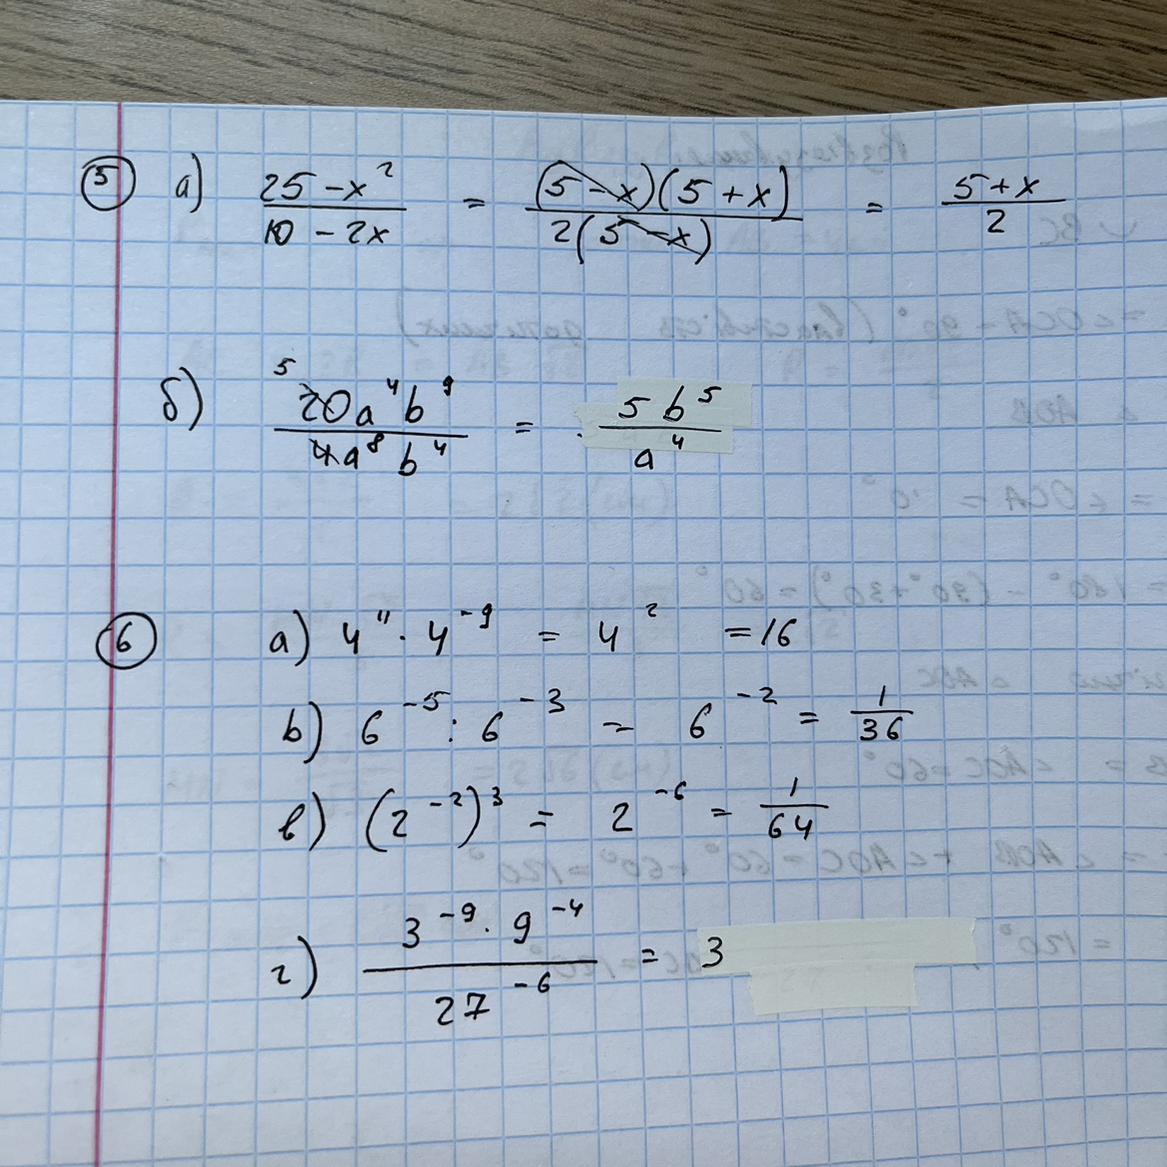 5 а) (25 - x²)/(10 - 2x) = ((5 - x)(5 + x))/(2(5 - x)) = (5 + x)/2
б) 5 20a⁴b⁹/(4a⁸b⁴) = 5b⁵/a⁴
6 а) 4¹¹ · 4⁻⁹ = 4² = 16
b) 6⁻⁵ : 6⁻³ = 6⁻² = 1/36
в) (2⁻²)³ = 2⁻⁶ = 1/64
г) (3⁻⁹ · 9⁻⁴)/27⁻⁶ = 3